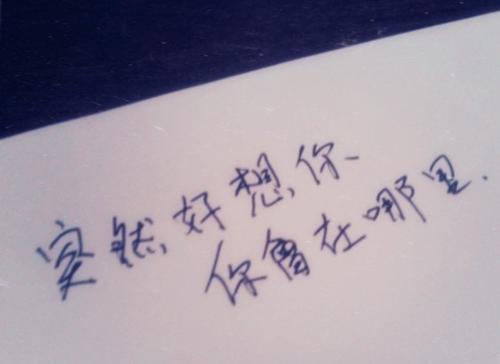 突然好想你
你會在哪里.